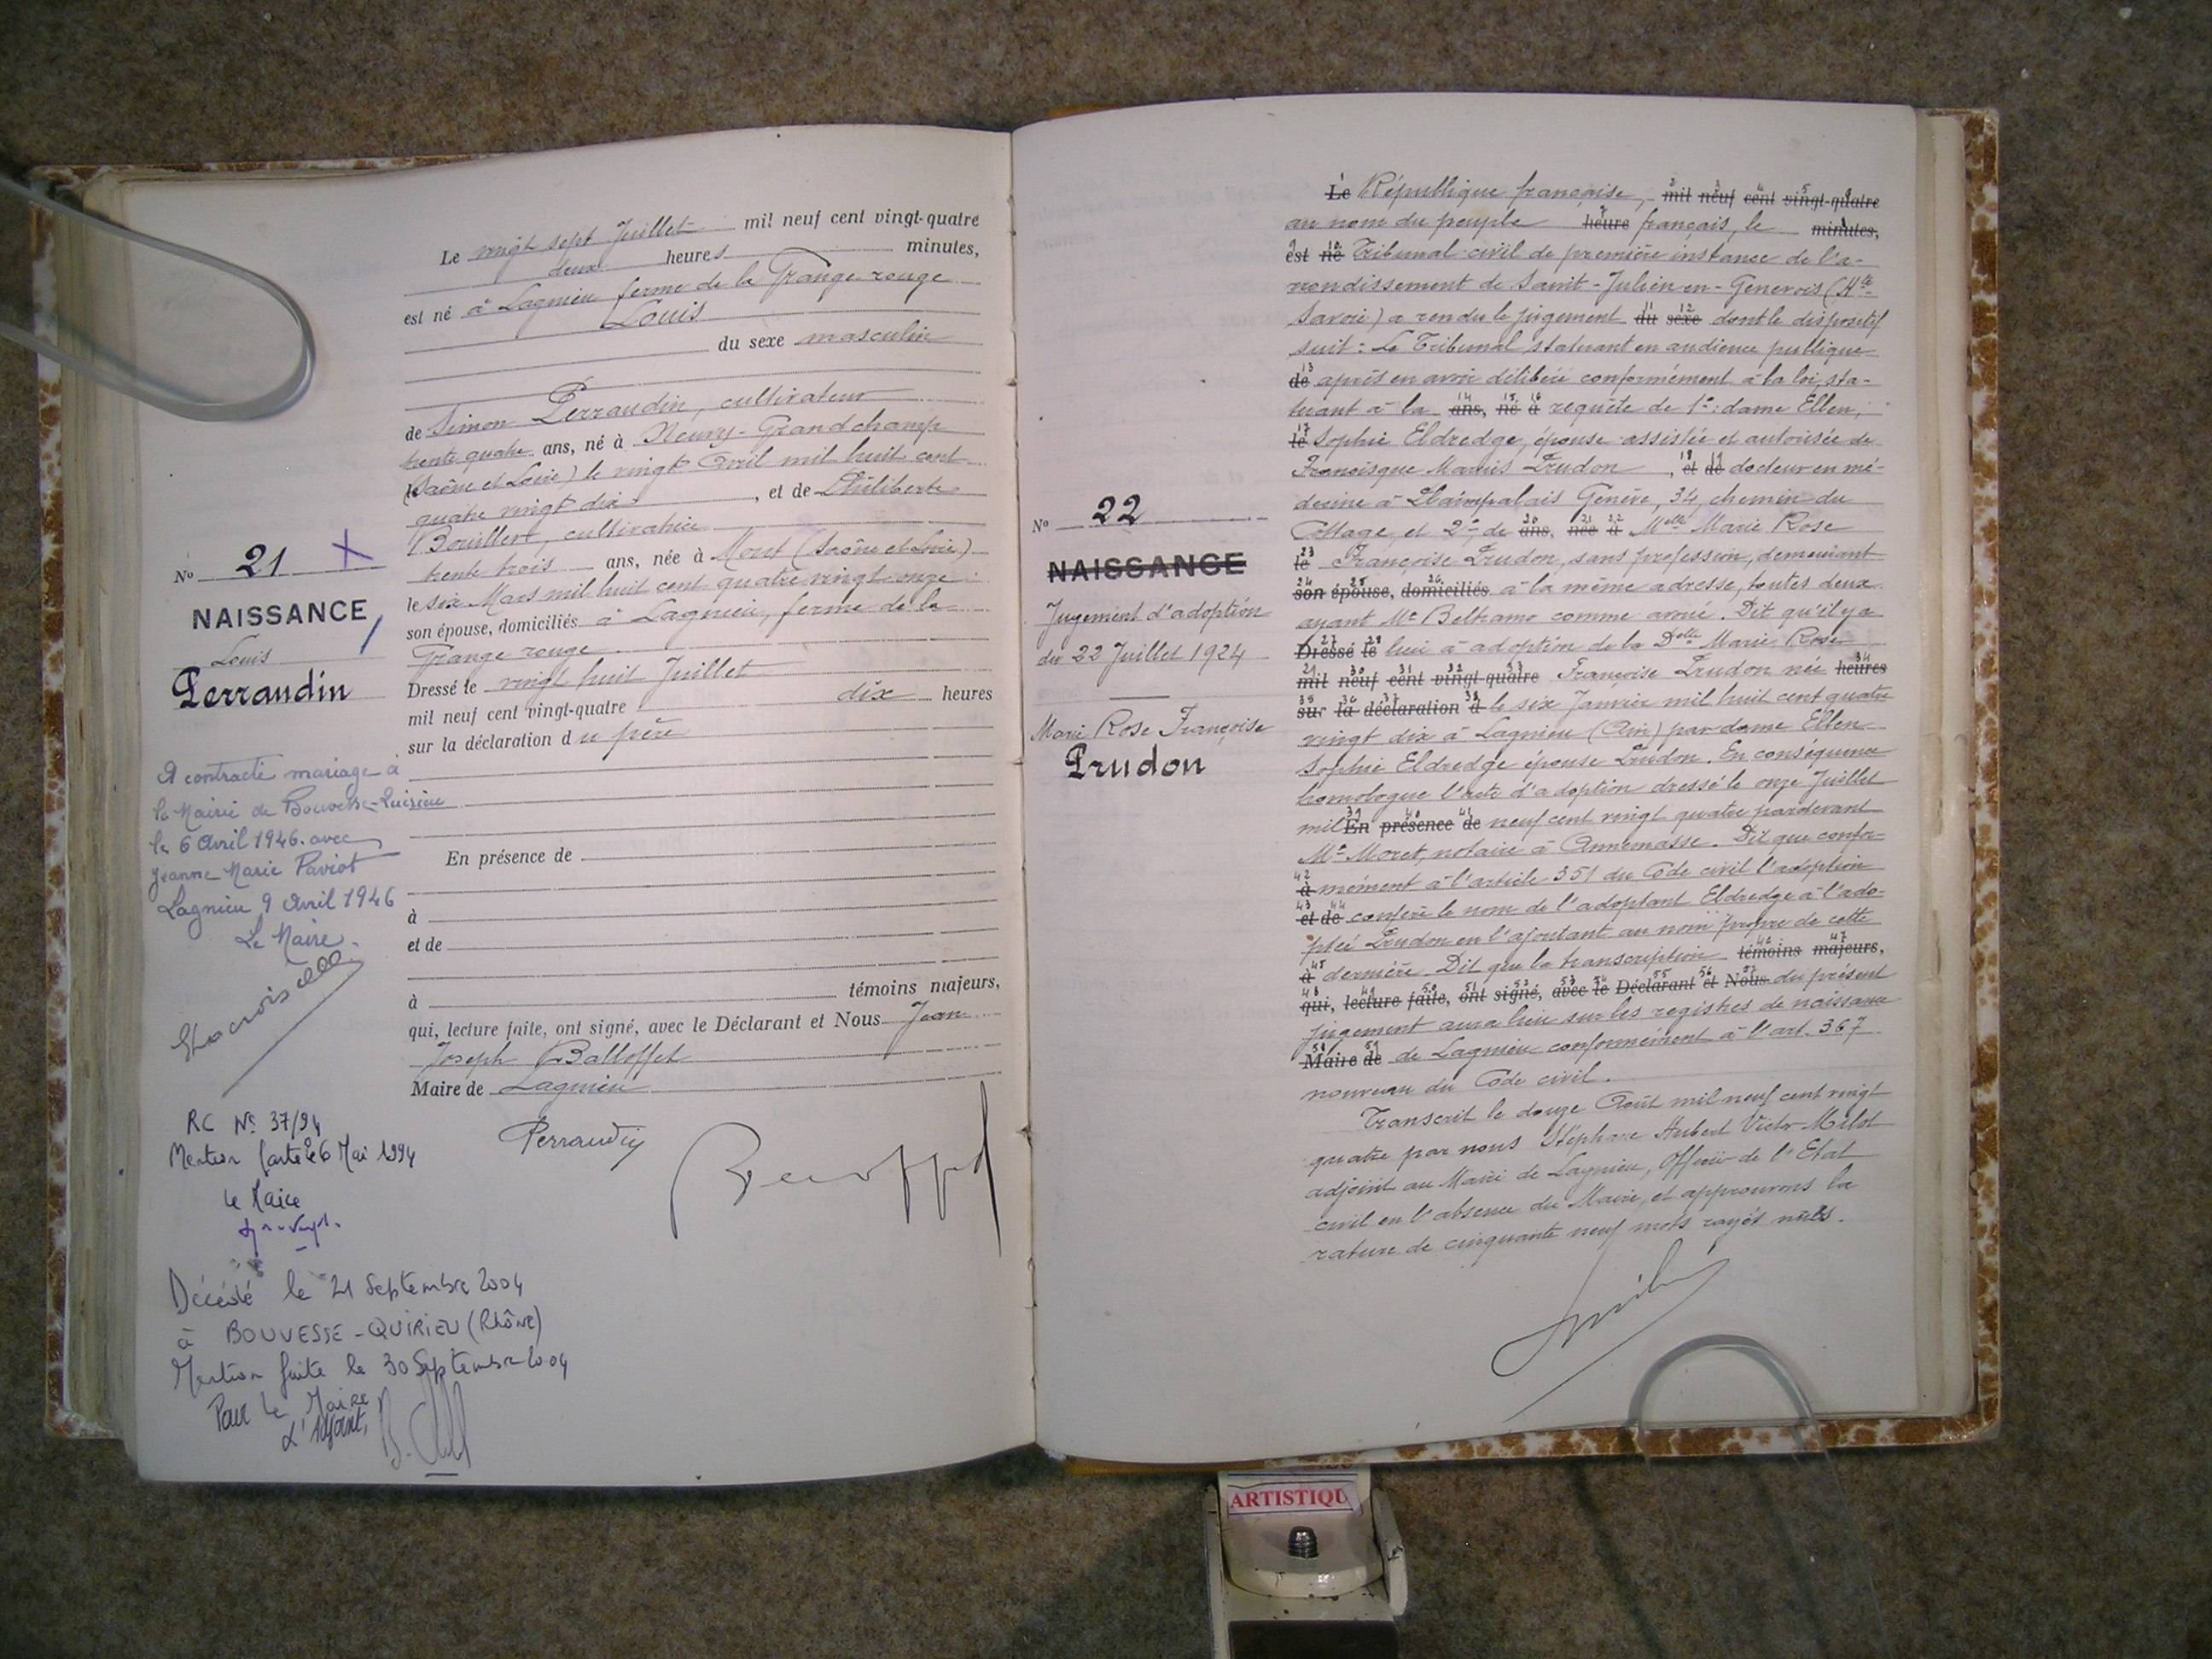 Le vingt sept Juillet mil neuf cent vingt-quatre
deux heures minutes,
est né à Lagnieu ferme de la Grange rouge
Louis
du sexe masculin
de Simon Perraudin, cultivateur
trente quatre ans, né à Neuvy-Grandchamp
(Saône et Loire) le vingt Avril mil huit cent
quatre vingt dix, et de Philiberte
Bouillert, cultivatrice
trente trois ans, née à Moret (Saône et Loire)
le six Mars mil huit cent quatre vingt onze
son épouse, domiciliés à Lagnieu, ferme de la
Grange rouge
Dressé le vingt huit Juillet
mil neuf cent vingt-quatre dix heures
sur la déclaration du père
En présence de
à
et de
à témoins majeurs,
qui, lecture faite, ont signé, avec le Déclarant et Nous Jean
Joseph Balloffet
Maire de Lagnieu
Perraudin
No 21
NAISSANCE
Louis
Perraudin
A contracté mariage à
la Mairie de Bouvesse-Quirieu
le 6 Avril 1946. avec
Jeanne Marie Paviot
Lagnieu 9 Avril 1946
Le Maire.
RC No 37/94
Mention faite le 6 Mai 1994
Le Maire
Décédé le 21 Septembre 2004
à BOUVESSE-QUIRIEU (Rhône)
Mention faite le 30 Septembre 2004
Pour Le Maire
L'Adjoint,
No 22
NAISSANCE
Jugement d'adoption
du 22 Juillet 1924
Marie Rose Françoise
Prudon
Le République française, mil neuf cent vingt-quatre
au nom du peuple heure français, le minutes,
est né Tribunal civil de première instance de l'a-
rrondissement de Saint-Julien-en-Genevois (Hte
Savoie) a rendu le jugement du sexe dont le dispositif
suit : Le Tribunal statuant en audience publique
de après en avoir délibéré conformément à la loi, sta-
tuant à la ans, né à requête de 1°: dame Ellen,
le Sophie Eldredge, épouse assistée et autorisée de
Francisque Marius Prudon, et de docteur en mé-
decine à Plainpalais Genève, 34, chemin du
Cottage, et 2° de ans, née à Melle Marie Rose
le Françoise Prudon, sans profession, demeurant
son épouse, domiciliés à la même adresse, toutes deux
ayant Me Beltramo comme avoué. Dit qu'il y a
Dressé le lieu à adoption de la Delle Marie Rose
mil neuf cent vingt-quatre Françoise Prudon née heures
sur la déclaration d le six Janvier mil huit cent quatre
vingt dix à Lagnieu (Ain) par dame Ellen
Sophie Eldredge épouse Prudon. En conséquence
homologue l'acte d'adoption dressé le onze Juillet
mil En présence de neuf cent vingt quatre pardevant
Me Moret, notaire à Annemasse. Dit que confor-
à mément à l'article 351 du Code civil l'adoption
et de confère le nom de l'adoptant Eldredge à l'ado-
ptée Prudon en l'ajoutant au nom propre de cette
à dernière. Dit que la transcription témoins majeurs,
qui, lecture faite, ont signé, avec le Déclarant et Nous du présent
jugement aura lieu sur les registres de naissance
Maire de de Lagnieu conformément à l'art. 367
nouveau du Code civil.
Transcrit le douze Août mil neuf cent vingt
quatre par nous Stéphane Hubert Victor Milot
adjoint au Maire de Lagnieu, Officier de l'Etat
civil en l'absence du Maire, et approuvons la
rature de cinquante neuf mots rayés nuls.
ARTISTIQU